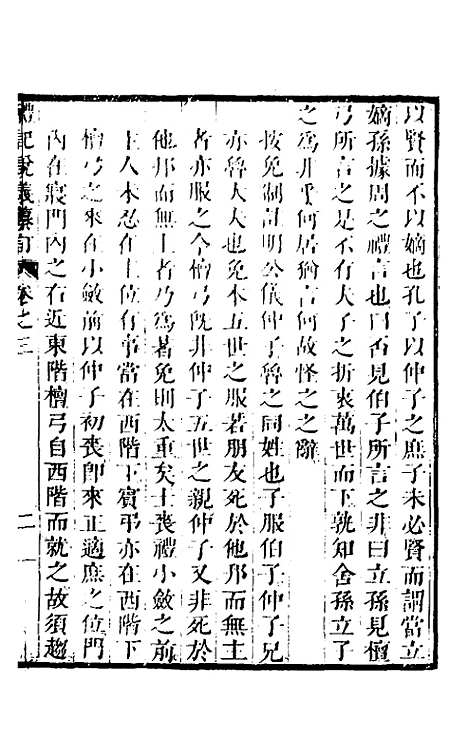 以賢而不以嫡也孔子以仲子之庶子未必賢而謂當立
嫡孫據周之禮言也曰否見伯子所言之非曰立孫見檀
弓所言之是不有夫子之折衷萬世而下孰知舍孫立子
之為非乎何居猶言何故怪之之辭
按免制註明公儀仲子魯之同姓也子服伯子仲子兄
亦魯大夫也免本五世之服若朋友死於他邦而無主
者亦服之今檀弓既非仲子五世之親仲子又非死於
他邦而無主者乃為著免則太重矣士喪禮小斂之前
主人未忍在主位有事當在西階下賓弔亦在西階下
檀弓之來在小斂前以仲子初喪即來正適庶之位門
內在寢門內之右近東階檀弓自西階而就之故須趨
禮記說義纂訂 卷之三 二